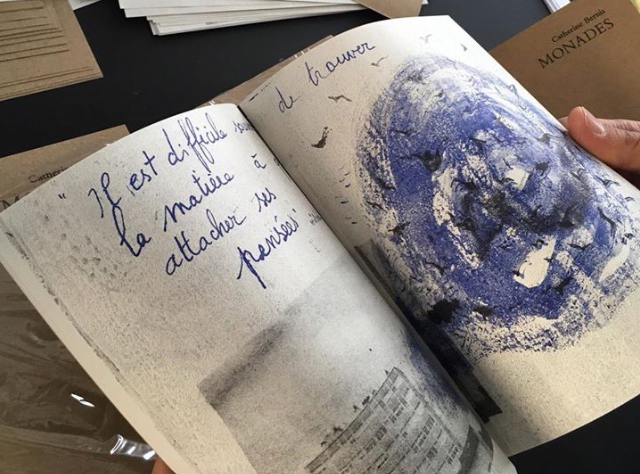 " Il est difficile
de trouver
la matière à
attacher ses
pensées
Catherine Bernis
MONADES